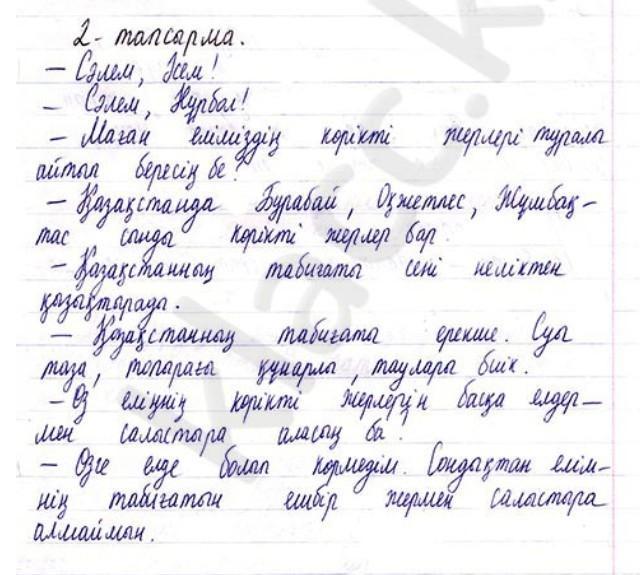 2-тапсырма.
– Сәлем, Әсем!
– Сәлем, Нұрбол!
– Маған еліміздің көрікті жерлері туралы
айтып бересің бе?
– Қазақстанда Бурабай, Оқжетпес, Жұмбақ-
тас сынды көрікті жерлер бар.
– Қазақстанның табиғаты сені неліктен
қызықтырады.
– Қазақстанның табиғаты ерекше. Суы
таза, топарағы құнарлы, таулары биік.
– Өз еліңнің көрікті жерлерін басқа елдер-
мен салыстыра аласың ба?
– Өзге елде болып көрмедім. Сондықтан елім-
нің табиғатын ешбір жермен салыстыра
алмаймын.
klacc.k